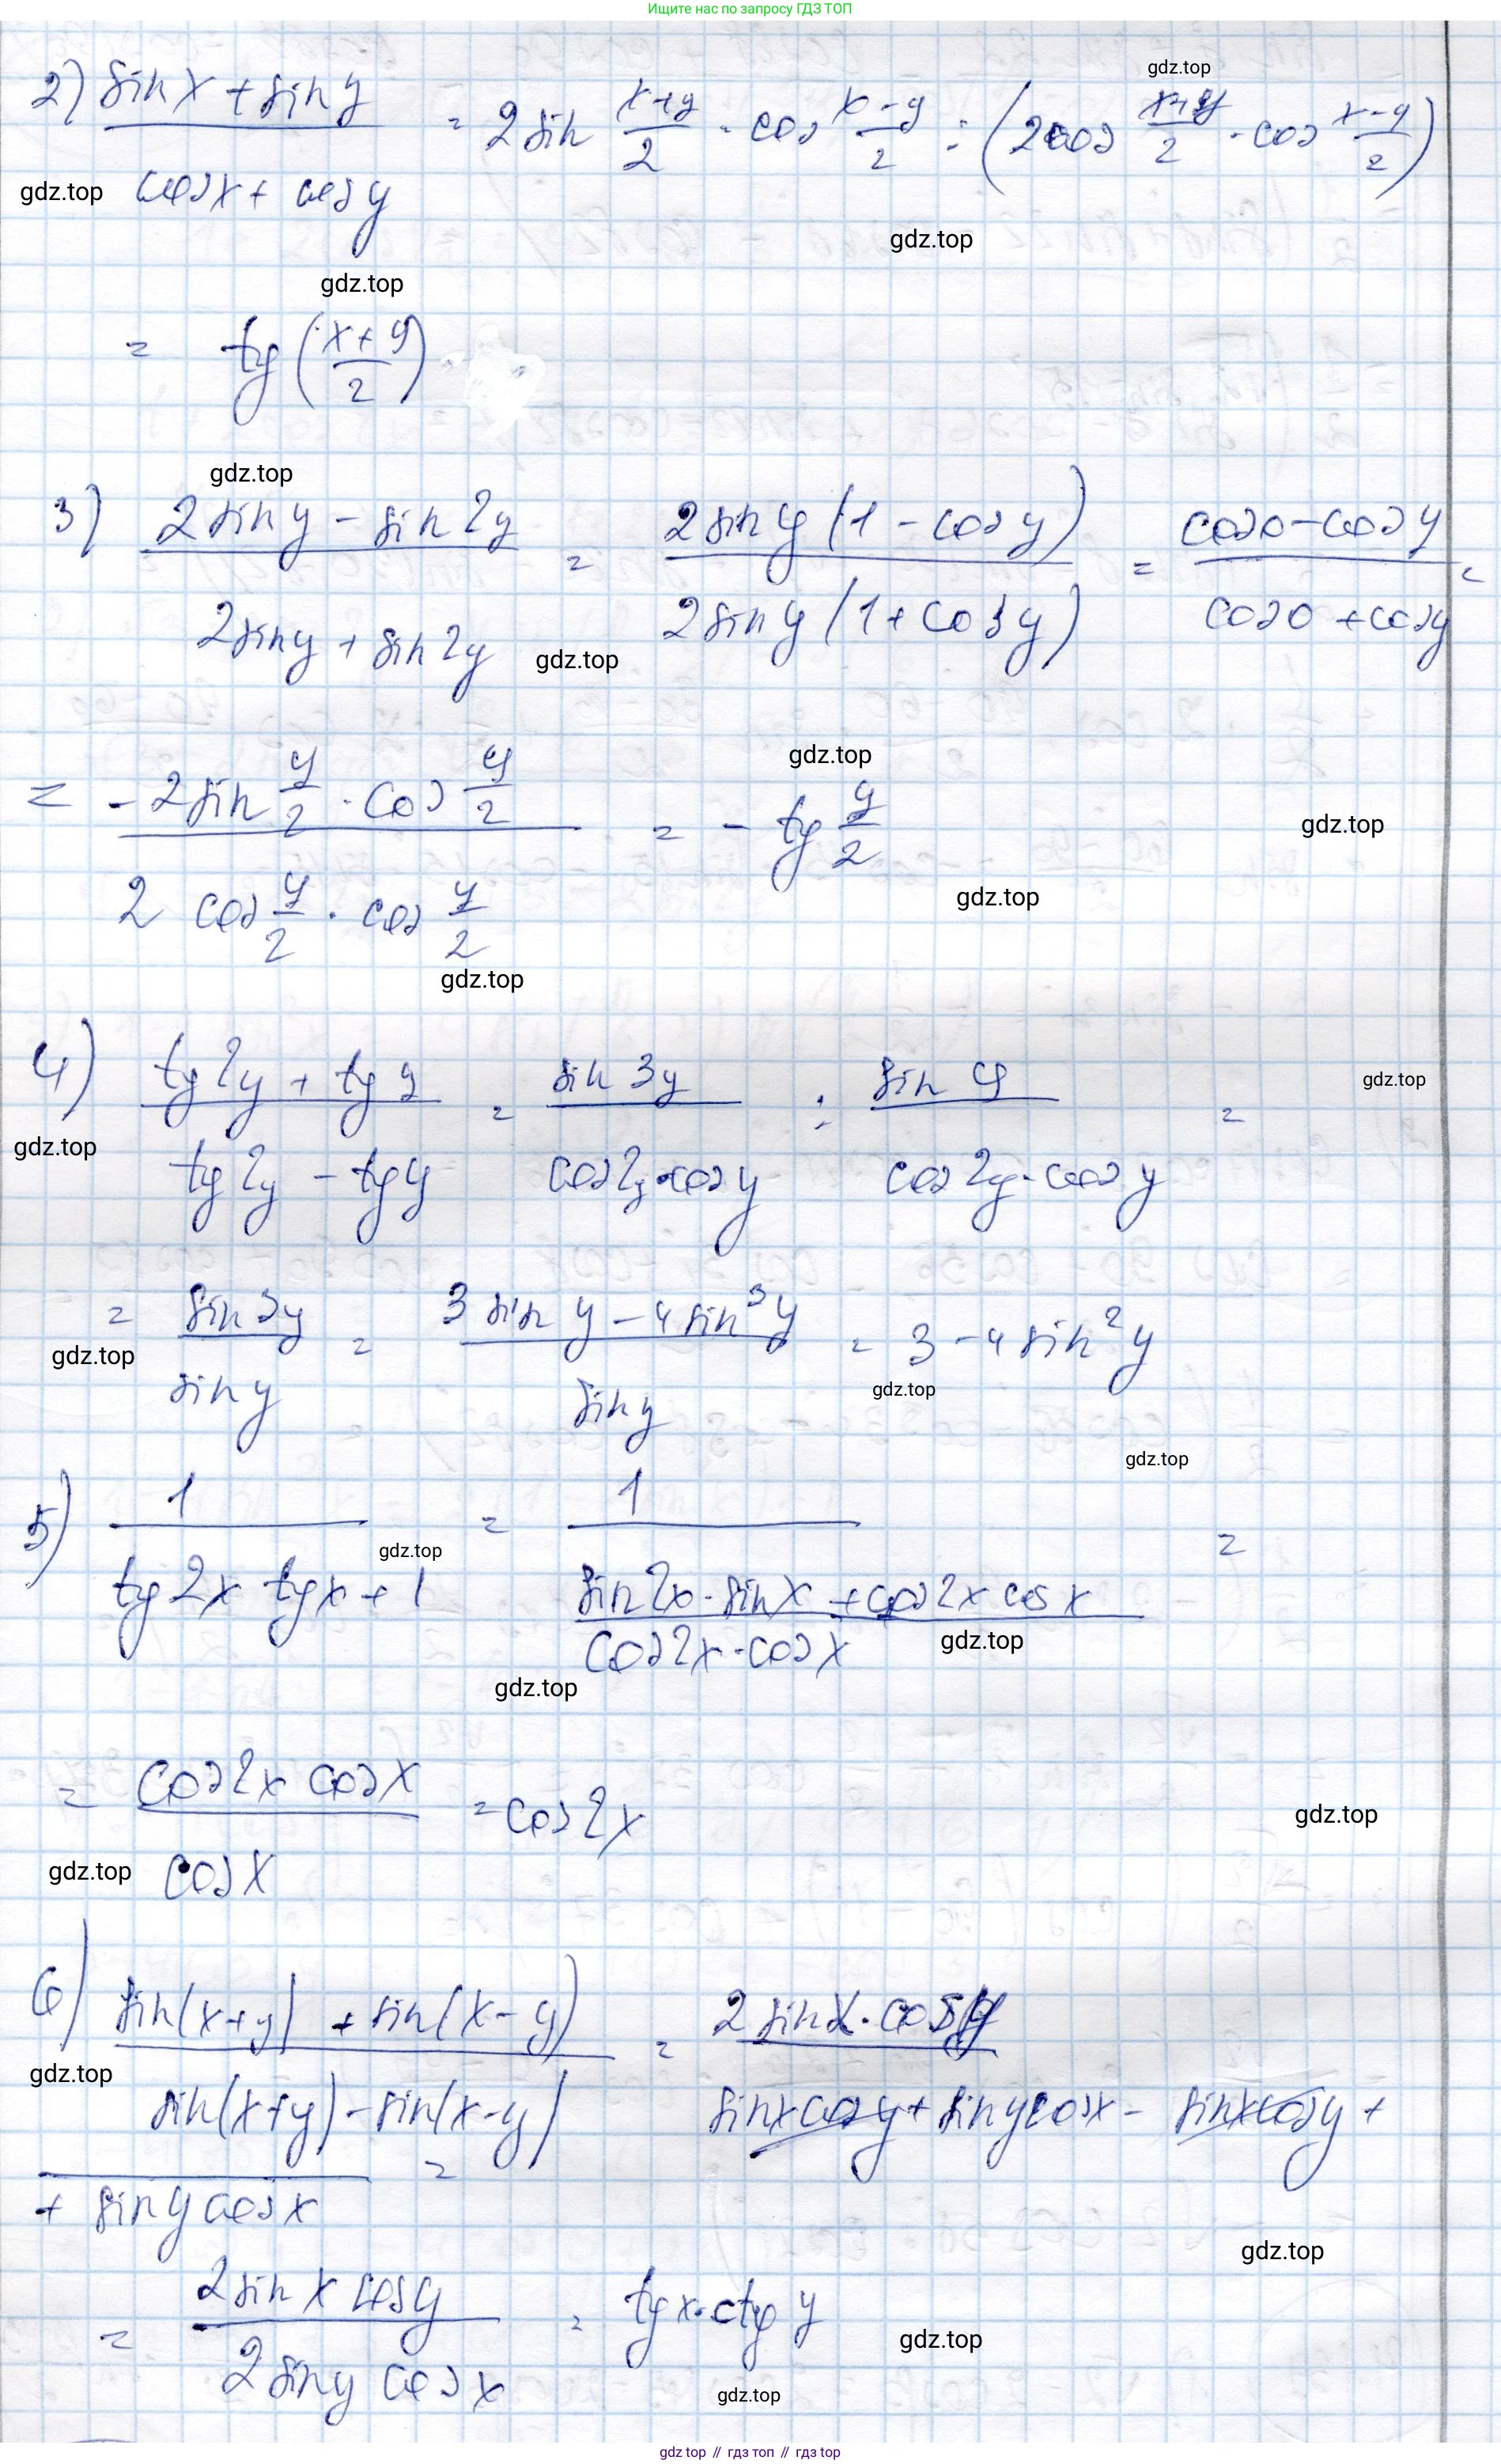 Ищите нас по запросу ГДЗ ТОП
gdz.top
2) (sin x + sin y)/(cos x + cos y) = 2 sin (x+y)/2 · cos (x-y)/2 : (2 cos (x+y)/2 · cos (x-y)/2)
gdz.top
gdz.top
gdz.top
= tg ((x+y)/2)
gdz.top
3) (2 sin y - sin 2y)/(2 sin y + sin 2y) = (2 sin y (1 - cos y))/(2 sin y (1 + cos y)) = (cos 0 - cos y)/(cos 0 + cos y) =
gdz.top
gdz.top
= (-2 sin y/2 · cos y/2)/(2 cos y/2 · cos y/2) = - tg y/2
gdz.top
gdz.top
gdz.top
4) (tg 2y + tg y)/(tg 2y - tg y) = (sin 3y)/(cos 2y · cos y) : (sin y)/(cos 2y · cos y) =
gdz.top
gdz.top
= (sin 3y)/(sin y) = (3 sin y - 4 sin³ y)/(sin y) = 3 - 4 sin² y
gdz.top
gdz.top
gdz.top
5) 1/(tg 2x tg x + 1) = 1/((sin 2x · sin x + cos 2x cos x)/(cos 2x · cos x)) =
gdz.top
gdz.top
gdz.top
= (cos 2x cos x)/(cos x) = cos 2x
gdz.top
gdz.top
6) (sin(x+y) + sin(x-y))/(sin(x+y) - sin(x-y)) = (2 sin x · cos y)/(sin x cos y + sin y cos x - sin x cos y +
gdz.top
+ sin y cos x) =
gdz.top
= (2 sin x cos y)/(2 sin y cos x) = tg x · ctg y
gdz.top
gdz.top
gdz.top // гдз топ // гдз top